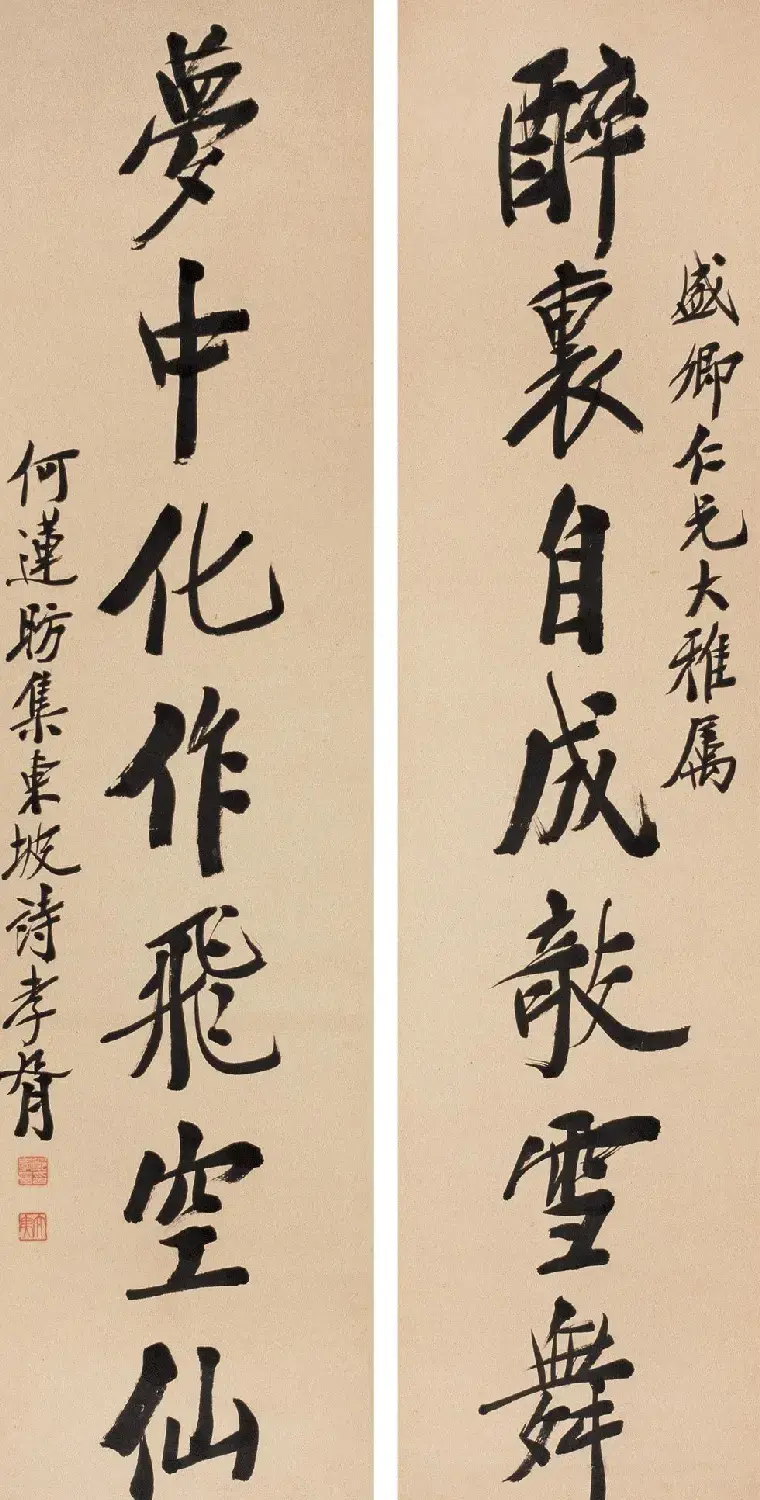 盛卿仁兄大雅属
醉裏自成敧雪舞
夢中化作飛空仙
何蓮昉集東坡詩孝胥